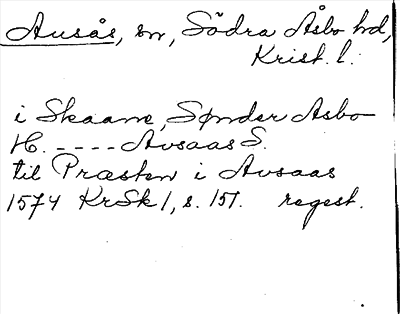 Ausås, sn, Södra Åsbo hd,
Krist. l.
i Skaane, Sønder Asbo
H. ---- Avsaas S.
til Præsten i Avsaas
1574 KrSk 1, s. 151. regest.